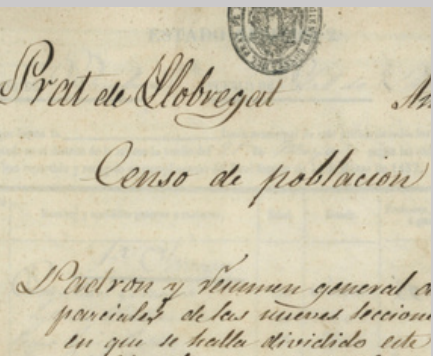 Prat de Llobregat
Censo de poblacion
Padron y resumen general
parciales de las nueves
en que se halla dividido este